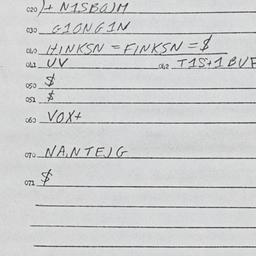 020 )+ N1SBOJM
030 G1ONG1N
040 HINKSN = FINKSN = $
041 UV 042 T1S+1 BUF
050 $
051 $
060 VOX+
070 NANTEJG
071 $